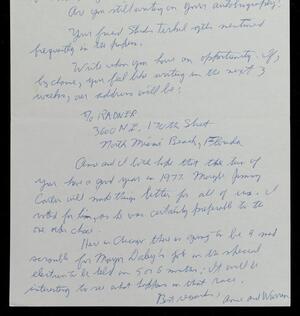 Are you still writing on your autobiography?
Your friend Studs Terkel often mentioned
frequently in the papers.
Write when you have an opportunity. If,
by chance, you feel like writing in the next 3
weeks, our address will be:
c/o RADNER
3600 N.E. 170th Street
North Miami Beach, Florida
Anne and I hope that the two of
you have a good year in 1977. Maybe Jimmy
Carter will make things better for all of us. I
voted for him, as he was certainly preferable to the
one now
Here in Chicago there is going to be a mad
scramble for Mayor Daley's job in the special
election to be held in 5 or 6 months; it will be
interesting to see what happens in that race.
Best regards,
Anne and Warren